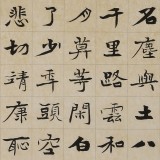 名塵與土八
千里路雲和
月莫等閑白
了少年頭空
悲切靖康恥